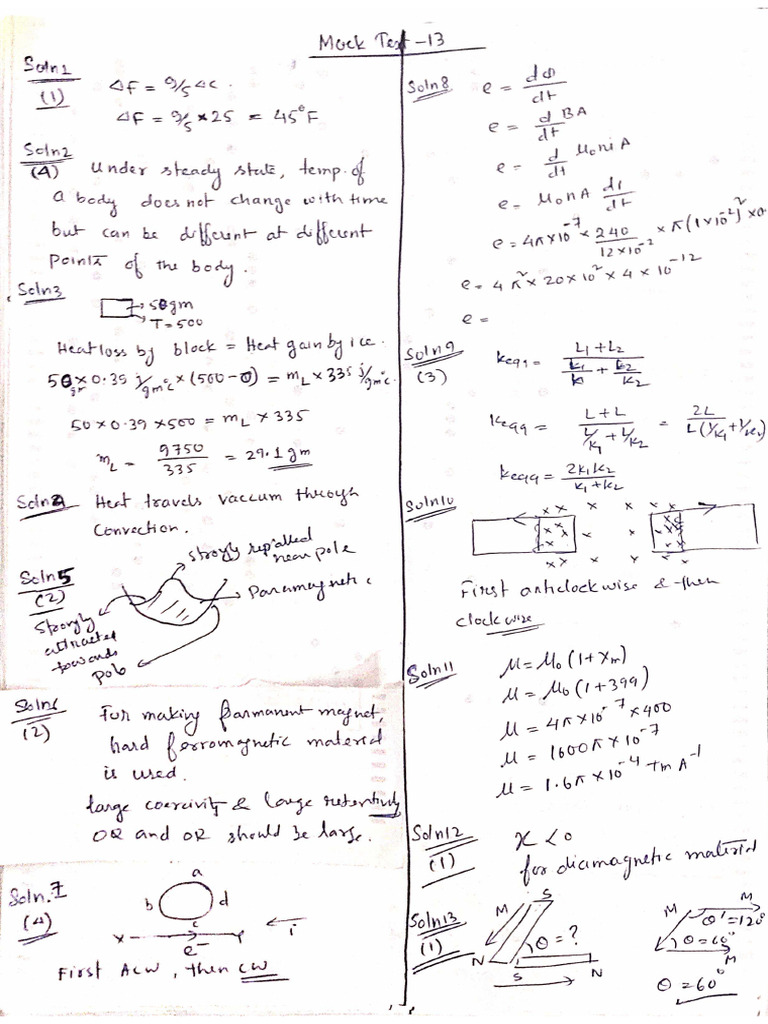 Mock Test-13
Soln1
(1)
ΔF = 9/5 ΔC.
ΔF = 9/5 × 25 = 45°F
Soln2
(4) Under steady state, temp. of
a body does not change with time
but can be different at different
points of the body.
Soln3
50gm
T=500
Heat loss by block = Heat gain by ice.
50gm × 0.39 J/gm°C × (500-0) = mL × 335 J/gm°C.
50 × 0.39 × 500 = mL × 335
mL = 9750/335 = 29.1 gm
Soln4 Heat travels vaccum through
Convection.
Soln5
(2)
strogly repalled
near pole
Paramagnetic
Strongly
attracted
towards
pole
Soln6
(2)
For making parmanent magnet,
hard ferromagnetic material
is used.
Large coercivity & large retentivity
OR and OR should be large.
Soln.7
(4)
a
b d
c
x e- y i
First ACW, then CW
Soln8 e = dΦ/dt
e = d/dt BA
e = d/dt μ0niA
e = μ0nA di/dt
e = 4π×10⁻⁷ × 240/12×10⁻² × π(1×10⁻²)² × 0
e = 4π² × 20 × 10² × 4 × 10⁻¹²
e =
Soln9
(3)
Keq1 = L1+L2 / L1/K1 + L2/K2
Keqq = L+L / L/K1 + L/K2 = 2L / L(1/K1+1/K2)
Keqq = 2K1K2 / K1+K2
Soln10
x x x x x
First anticlockwise & then
clockwise
Soln11
μ = μ0(1+xm)
μ = μ0(1+399)
μ = 4π×10⁻⁷ × 400
μ = 1600π × 10⁻⁷
μ = 1.6π × 10⁻⁴ TmA⁻¹
Soln12
(1)
x < 0
for diamagnetic material
Soln13
(1)
M S
θ = ?
N S N
M θ' = 120°
θ = 60°
M
θ = 60°